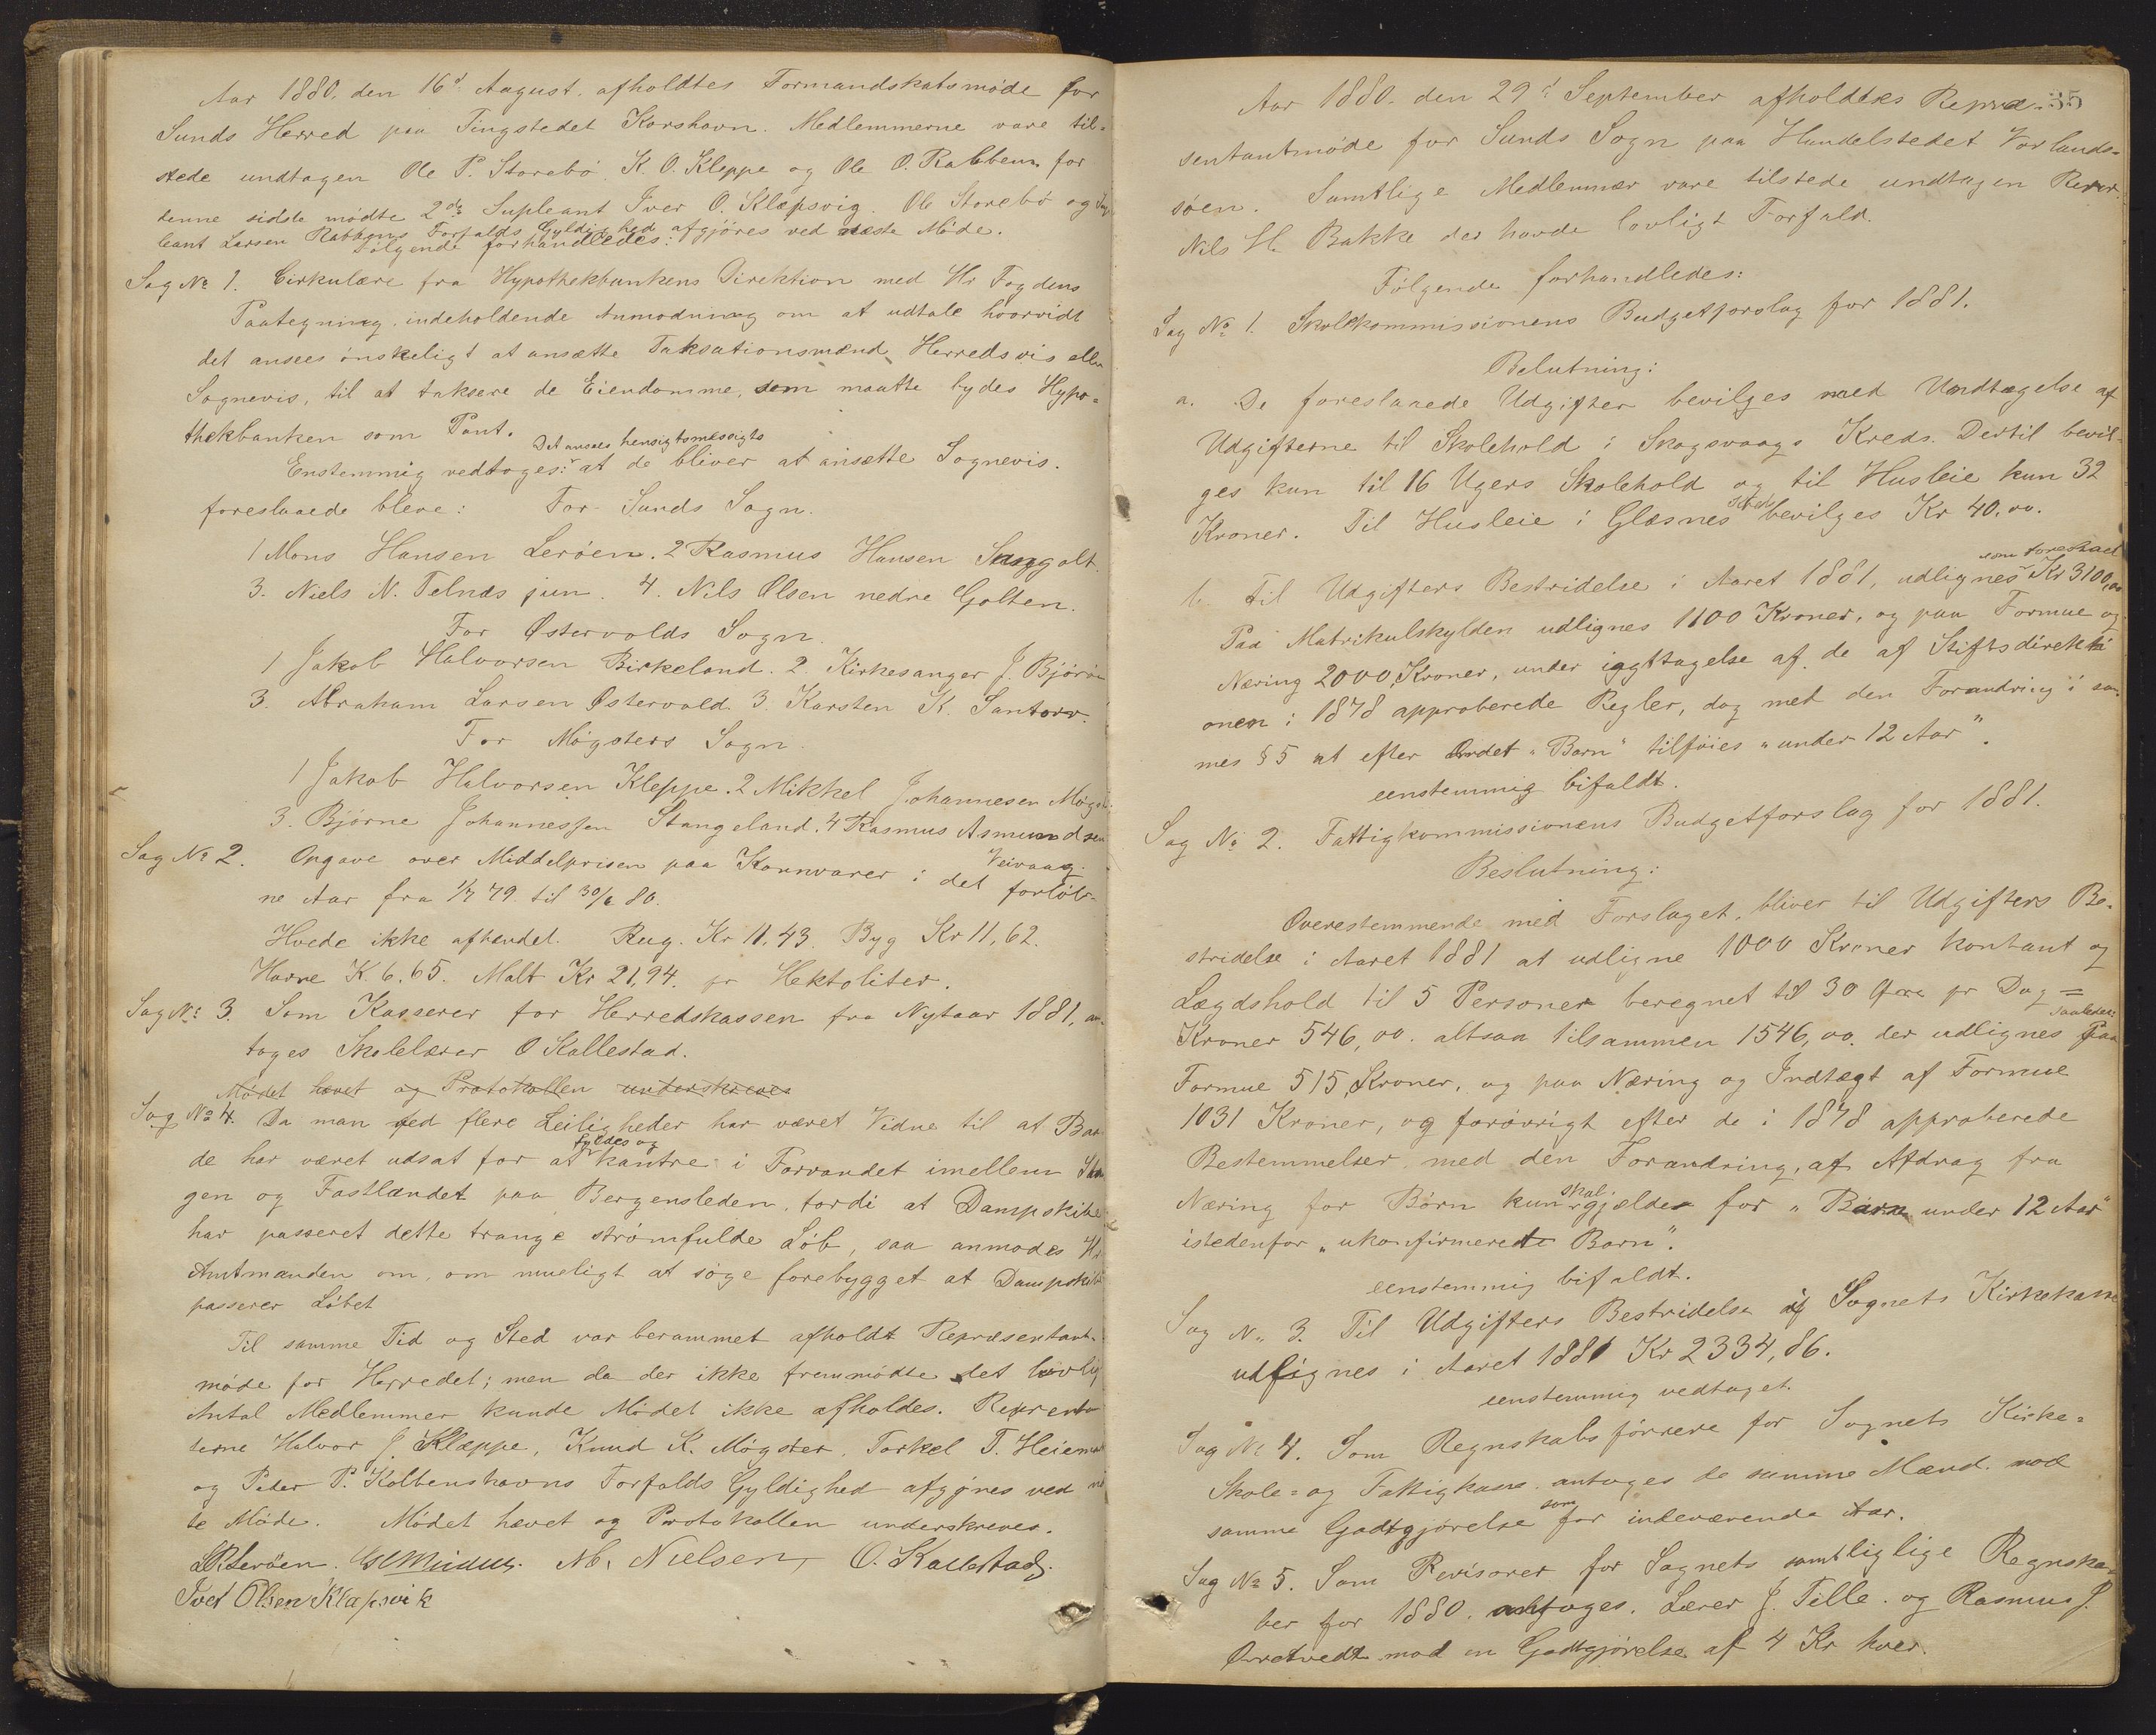 Aar 1880. den 16d August. afholdtes Formandskabsmøde for
Sunds Herred paa Tingstedet Korshavn. Medlemmerne vare til=
stede undtagen Ole P. Storebø K. O. Kleppe og Ole O. Rabben for
denne sidste mødte 2de Supleant Iver O. Klepsvig. Ole Storebø og Sup
leant Larsen Rabbens Forfalds Gyldighed afgjøres ved næste Møde.
Følgende forhandledes:
Sag No 1. Cirkulære fra Hypothekbankens Direktion med Hr Fogdens
Paategning indeholdende Anmodning om at udtale hvorvidt
det ansees ønskeligt at ansætte Taksationsmænd Herredsvis eller
Sognevis, til at taksere de Eiendomme, som maatte bydes Hypo=
thekbanken som Pant.
Det ansees hensigtsmæssigts
Enstemmig vedtoges: at de bliver at ansætte Sognevis.
foreslaaede bleve: For Sunds Sogn.
1 Mons Hansen Lerøen. 2 Rasmus Hansen Sangolt.
3. Niels N. Telnæs jun. 4. Nils Olsen nedre Golten.
For Østervolds Sogn.
1 Jakob Halvorsen Birkeland. 2. Kirkesanger J. Bjørøen
3. Abraham Larsen Østervold. 3. Karsten K. Santorv.
For Møgsters Sogn.
1 Jakob Halvorsen Kleppe. 2 Mikkel Johannesen Møgst.
3. Bjørne Johannessen Stangeland. 4 Rasmus Asmundsen
Veivaag.
Sag No 2. Opgave over Middelprisen paa Kornvarer i det forløb=
ne Aar fra 1/7 79. til 30/6 80.
Hvede ikke afhendet. Rug. Kr 11,43. Byg Kr 11,62.
Havre K 6,65. Malt Kr 21,94. pr Hektoliter.
Sag No: 3. Som Kasserer for Herredskassen fra Nytaar 1881, an=
toges Skolelærer O Kallestad.
Mødet hævet og Protokollen underskreves
Sag No 4. Da man ved flere Leiligheder har været Vidne til at Baa
fyldes og
de har været udsat for at kantre i Forvandet imellem Stan
gen og Fastlandet paa Bergensleden, fordi at Dampskibe
har passeret dette trange strømfulde Løb, saa anmodes Hr
Amtmanden om, om mueligt at søge forebygget at Dampskibe
passerer Løbet
Til samme Tid og Sted var berammet afholdt Repræsentant=
møde for Herredet; men da der ikke fremmødte det lovlig
Antal Medlemmer kunde Mødet ikke afholdes. Represen
terne Halvor J Klæppe, Knud K. Møgster, Torkel T. Heiem
og Peder P. Kolbenshavns Forfalds Gyldighed afgjøres ved næ
te Møde. Mødet hævet og Protokollen underskreves.
Lerøen. M. Nielsen, O. Kallestad.
Iver Olsen Klæpsvik
35
Aar 1880. den 29d September afholdtes Repræ=
sentantmøde for Sunds Sogn paa Handelstedet Vorlands=
søen. Samtlige Medlemmer vare tilstede undtagen Repr.
Nils H. Bakke der havde lovligt Forfald.
Følgende forhandledes:
Sag No 1. Skolekommissionens Budgetforslag for 1881.
Belutning:
a. De foreslaaede Udgifter bevilges med Undtagelse af
Udgifterne til Skolehold i Skogsvaags Kreds. Dertil bevil=
ges kun til 16 Ugers Skolehold og til Husleie kun 32
Kroner. Til Husleie i Glæsnes bevilges Kr 40,00.
som foreslaaet
b. Til Udgifters Bestridelse i Aaret 1881, udlignes Kr 3100,00
Paa Matrikulskylden udlignes 1100 Kroner, og paa Formue og
Næring 2000 Kroner, under iagttagelse af de af Stiftsdirekti
onen i 1878 approberede Regler, dog med den Forandring i sam
mes § 5 at efter Ordet "Barn" tilføies "under 12 Aar".
eenstemmig bifaldt.
Sag No 2. Fattigkommissionens Budgetforslag for 1881.
Beslutning:
Overestemmende med Forslaget, bliver til Udgifters Be=
stridelse i Aaret 1881 at udligne 1000 Kroner kontant og
Lægdshold til 5 Personer beregnet til 30 Øre pr Dag =
saaledes:
Kroner 546,00. altsaa tilsammen 1546,00. der udlignes Paa
Formue 515 Kroner, og paa Næring og Indtægt af Formue
1031 Kroner, og forøvrigt efter de i 1878 approberede
Bestemmelser, med den Forandring, af Afdrag fra
skal
Næring for Børn kun gjælder for "Barn under 12 Aar"
istedenfor "ukonfirmerede Barn".
eenstemmig bifaldt.
Sag No 3. Til Udgifters Bestridelse af Sognets Kirkekasse
udlignes i Aaret 1881 Kr 2334,86.
eenstemmig vedtaget.
Sag No 4. Som Regnskabsførrere for Sognets Kirke=
Skole= og Fattigkasse antoges de samme Mænd. mod
som
samme Godtgjørelse for indeværende Aar.
Sag No 5. Som Revisorer for Sognets samtliglige Regnska=
ber for 1880. antoges. Lærer J. Tille. og Rasmus J.
Ovretvedt mod en Godtgjørelse af 4 Kr hver.